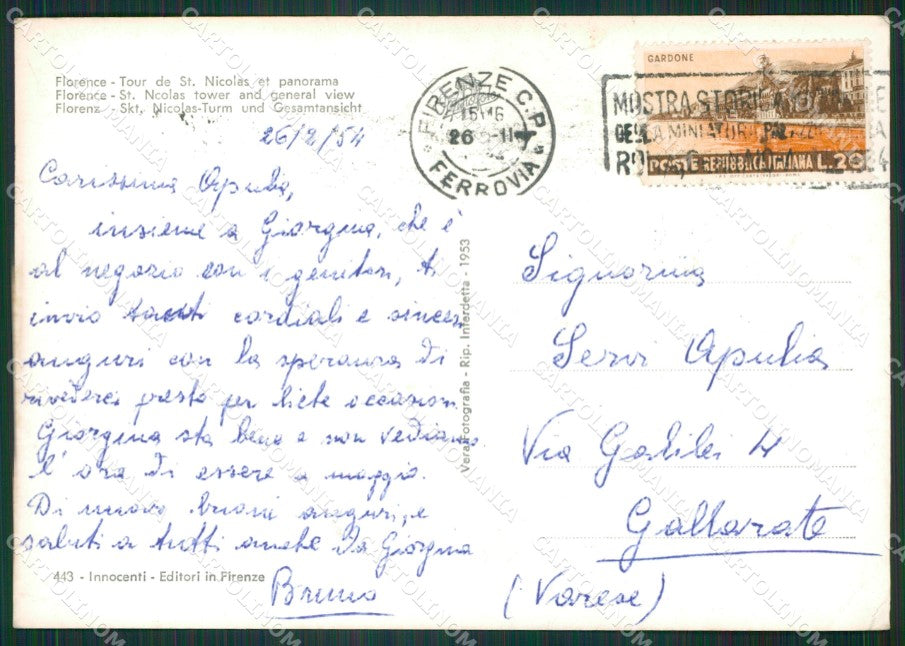 Florence - Tour de St. Nicolas et panorama
Florence - St. Nicolas tower and general view
Florenz - Skt. Nicolas-Turm und Gesamtansicht
26/2/54
Carissima Apulia,
insieme a Giorgina, che è
al negozio con i genitori, ti
invio tanti cordiali e sinceri
auguri con la speranza di
rivederci presto per liete occasioni
Giorgina sta bene e non vediamo
l'ora di essere a maggio.
Di nuovo buoni auguri, e
saluti a tutti anche da Giorgina
Bruno
443 - Innocenti - Editori in Firenze
Vera Fotografia - Rip. Interdetta - 1953
FIRENZE C.P.
26
FERROVIA
GARDONE
MOSTRA STORICA
DELLA MINIATURA
POSTE REPUBBLICA ITALIANA L.20
Signorina
Servi Apulia
Via Galilei 4
Gallarate
(Varese)
CARTOLINOMANIA